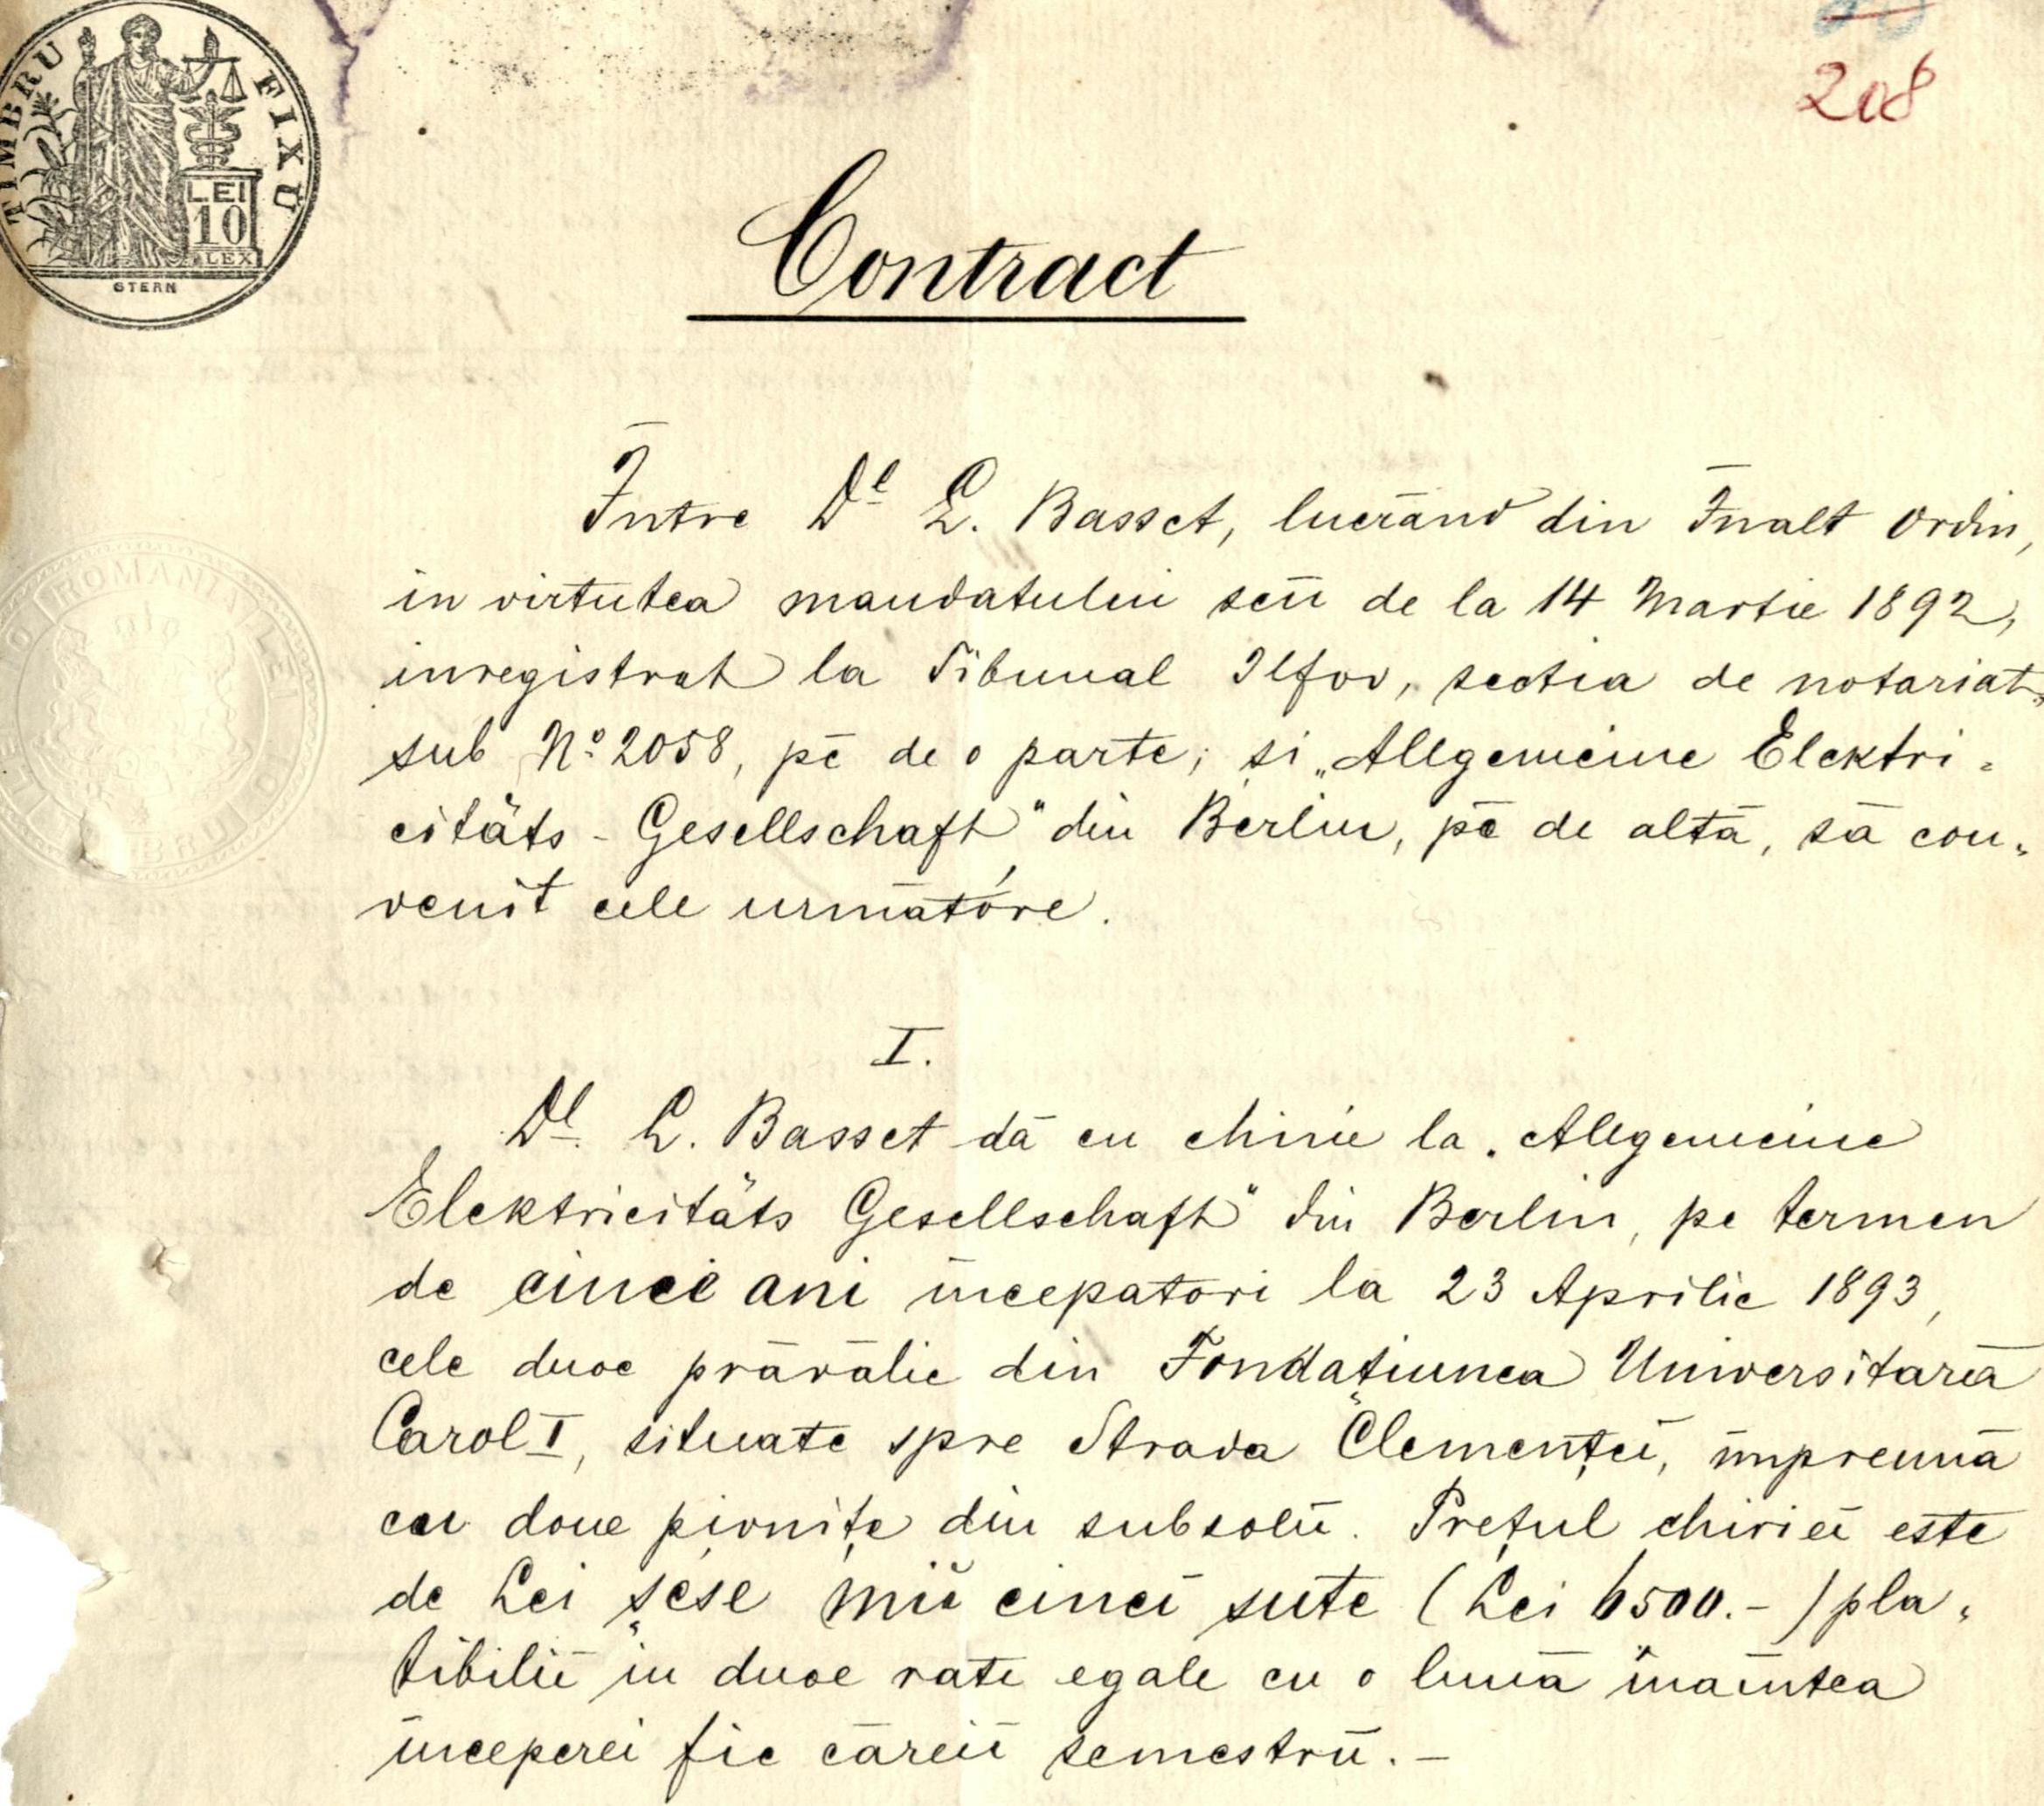 TIMBRU FIXŬ
LEI
10
LEX
STERN
208
Contract
Între Dl L. Basset, lucrānd din Īnalt Ordin,
in virtutea mandatului seŭ de la 14 Martie 1892,
inregistrat la Tibunal Ilfov, sectia de notariat,
sub No 2058, pē de o parte; si „Allgemeine Elektri-
citäts-Gesellschaft" din Berlin, pē de altā, sā con-
venit cele urmātóre.
I.
Dl. L. Basset dā cu chirie la „Allgemeine
Elektricitäts Gesellschaft" din Berlin, pe termen
de cinci ani īncepatori la 23 Aprilie 1893,
cele duoe prāvālie din Fondațiunea Universitarā
Carol I, situate spre Strada Clemenței, īmpreunā
cu doue pivnițe din subsolŭ. Prețul chiriei este
de Lei șese miĭ cinci sute (Lei 6500.-) pla-
tibiliī in duoe rate egale cu o lunā īnaīntea
īnceperei fie cāreiī semestrŭ.-
ROMANIA